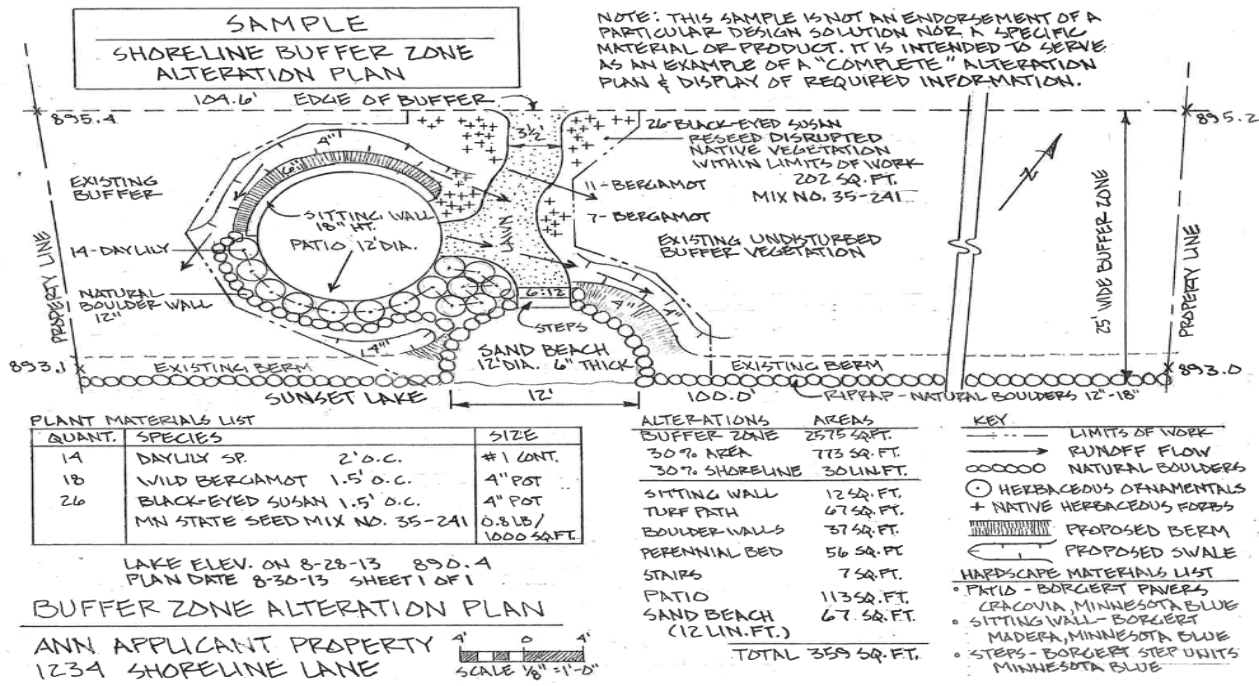 SAMPLE
SHORELINE BUFFER ZONE
ALTERATION PLAN
NOTE: THIS SAMPLE IS NOT AN ENDORSEMENT OF A
PARTICULAR DESIGN SOLUTION NOR A SPECIFIC
MATERIAL OR PRODUCT. IT IS INTENDED TO SERVE
AS AN EXAMPLE OF A "COMPLETE" ALTERATION
PLAN & DISPLAY OF REQUIRED INFORMATION.
104.6' EDGE OF BUFFER
895.4
895.2
3½'
26-BLACK-EYED SUSAN
RESEED DISRUPTED
NATIVE VEGETATION
WITHIN LIMITS OF WORK
202 SQ. FT.
MIX NO. 35-241
4"
6"
EXISTING
BUFFER
11-BERGAMOT
7-BERGAMOT
SITTING WALL
18" HT.
PATIO 12' DIA.
LAWN
EXISTING UNDISTURBED
BUFFER VEGETATION
14-DAYLILY
NATURAL
BOULDER WALL
12"
PROPERTY LINE
25' WIDE BUFFER ZONE
PROPERTY LINE
6:12
4"
4"
STEPS
4"
SAND BEACH
12' DIA. 6" THICK
893.1
EXISTING BERM
EXISTING BERM
893.0
SUNSET LAKE
12'
100.0'
RIPRAP-NATURAL BOULDERS 12"-18"
PLANT MATERIALS LIST
QUANT. SPECIES SIZE
14 DAYLILY SP. 2' O.C. #1 CONT.
18 WILD BERGAMOT 1.5' O.C. 4" POT
26 BLACK-EYED SUSAN 1.5' O.C. 4" POT
MN STATE SEED MIX NO. 35-241 0.8 LB/
1000 SQ.FT.
LAKE ELEV. ON 8-28-13 890.4
PLAN DATE 8-30-13 SHEET 1 OF 1
BUFFER ZONE ALTERATION PLAN
ANN APPLICANT PROPERTY
1234 SHORELINE LANE
4' 0 4'
SCALE ⅛" = 1'-0"
ALTERATIONS AREAS
BUFFER ZONE 2575 SQ.FT.
30% AREA 773 SQ. FT.
30% SHORELINE 30 LIN.FT.
SITTING WALL 12 SQ. FT.
TURF PATH 67 SQ. FT.
BOULDER WALLS 37 SQ. FT.
PERENNIAL BED 56 SQ. FT
STAIRS 7 SQ. FT.
PATIO 113 SQ. FT.
SAND BEACH 67 SQ. FT.
(12 LIN. FT.)
TOTAL 359 SQ. FT.
KEY
LIMITS OF WORK
RUNOFF FLOW
NATURAL BOULDERS
HERBACEOUS ORNAMENTALS
+ NATIVE HERBACEOUS FORBS
PROPOSED BERM
PROPOSED SWALE
HARDSCAPE MATERIALS LIST
• PATIO - BORGERT PAVERS
CRACOVIA, MINNESOTA BLUE
• SITTING WALL - BORGERT
MADERA, MINNESOTA BLUE
• STEPS - BORGERT STEP UNITS
MINNESOTA BLUE